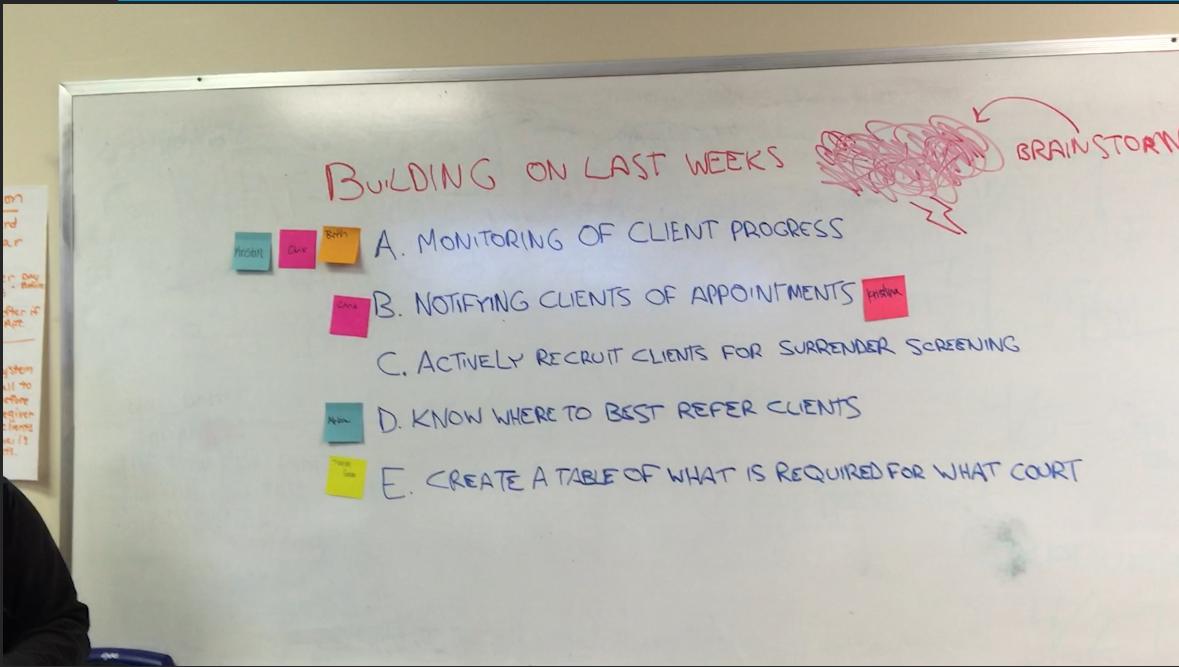 BUILDING ON LAST WEEKS
BRAINSTORM
A. MONITORING OF CLIENT PROGRESS
B. NOTIFYING CLIENTS OF APPOINTMENTS
Kristina
C. ACTIVELY RECRUIT CLIENTS FOR SURRENDER SCREENING
D. KNOW WHERE TO BEST REFER CLIENTS
E. CREATE A TABLE OF WHAT IS REQUIRED FOR WHAT COURT